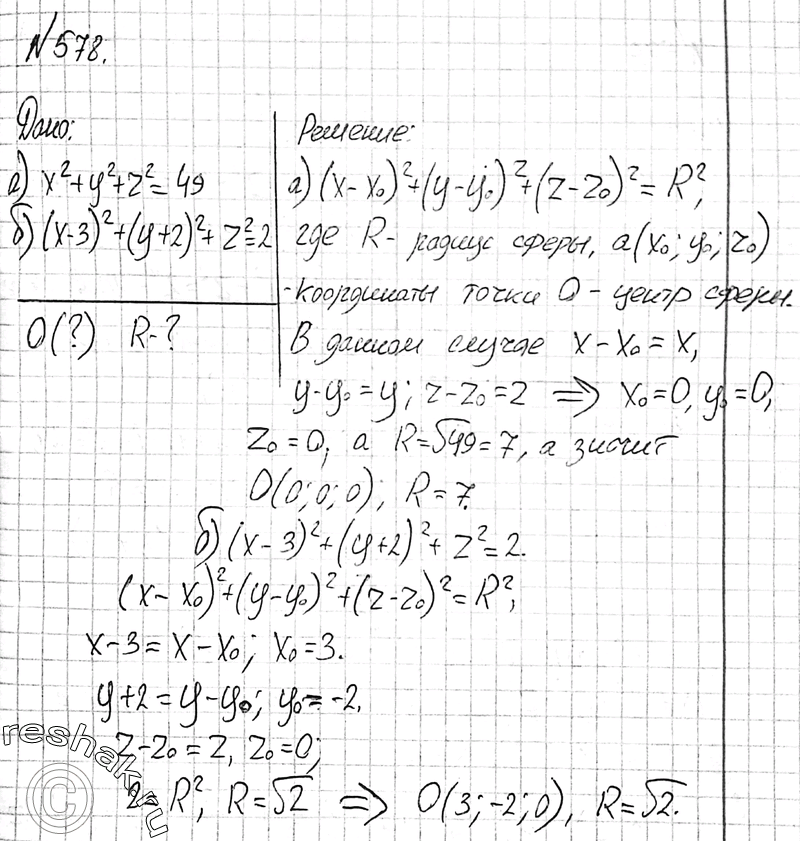 №578.
Дано:
а) x²+y²+z²=49
б) (x-3)²+(y+2)²+z²=2
O(?) R-?
Решение:
а) (x-x₀)²+(y-y₀)²+(z-z₀)²=R²,
где R- радиус сферы, а(x₀; y₀; z₀)
-координаты точки O - центр сферы.
В данном случае x-x₀=x,
y-y₀=y; z-z₀=z ⇒ x₀=0, y₀=0,
z₀=0, а R=√49=7, а значит
O(0; 0; 0), R=7.
б) (x-3)²+(y+2)²+z²=2.
(x-x₀)²+(y-y₀)²+(z-z₀)²=R²;
x-3=x-x₀; x₀=3.
y+2=y-y₀; y₀=-2.
z-z₀=z, z₀=0;
2=R², R=√2 ⇒ O(3;-2;0), R=√2.
reshak.ru
©